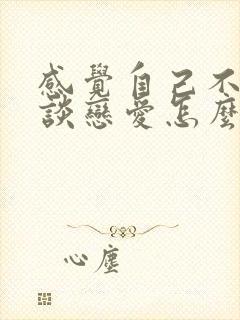 感覺自己不
談戀愛怎麼
心塵